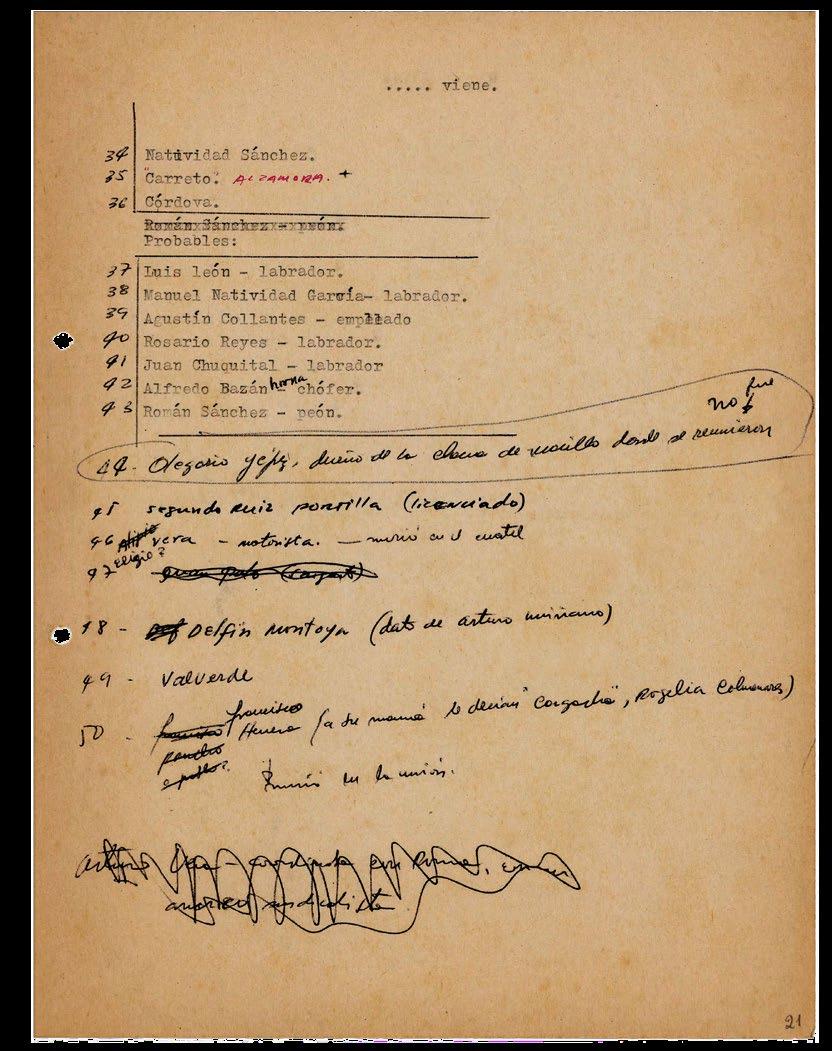 ..... viene.
34 Natividad Sánchez.
35 "Carreto". ALZAMORA. +
36 Córdova.
Román Sánchez - peón.
Probables:
37 Luis león - labrador.
38 Manuel Natividad García- labrador.
39 Agustín Collantes - empleado
40 Rosario Reyes - labrador.
41 Juan Chuquital - labrador
42 Alfredo Bazán horna - chófer.
43 Román Sánchez - peón.
no fue
44- Olegario yepez, dueño de la donde se reunieron
45 segundo Ruiz portilla (licenciado)
46 Alipio vera - motorista. - murió en el cuartel
Eligio?
47
48 - Delfin Montoya (dato de arturo miñano)
49 - Valverde
50 - francisco Herrera (a su mamá le decían "", Rogelia Colmenares)
pancho
murió en la unión.
21